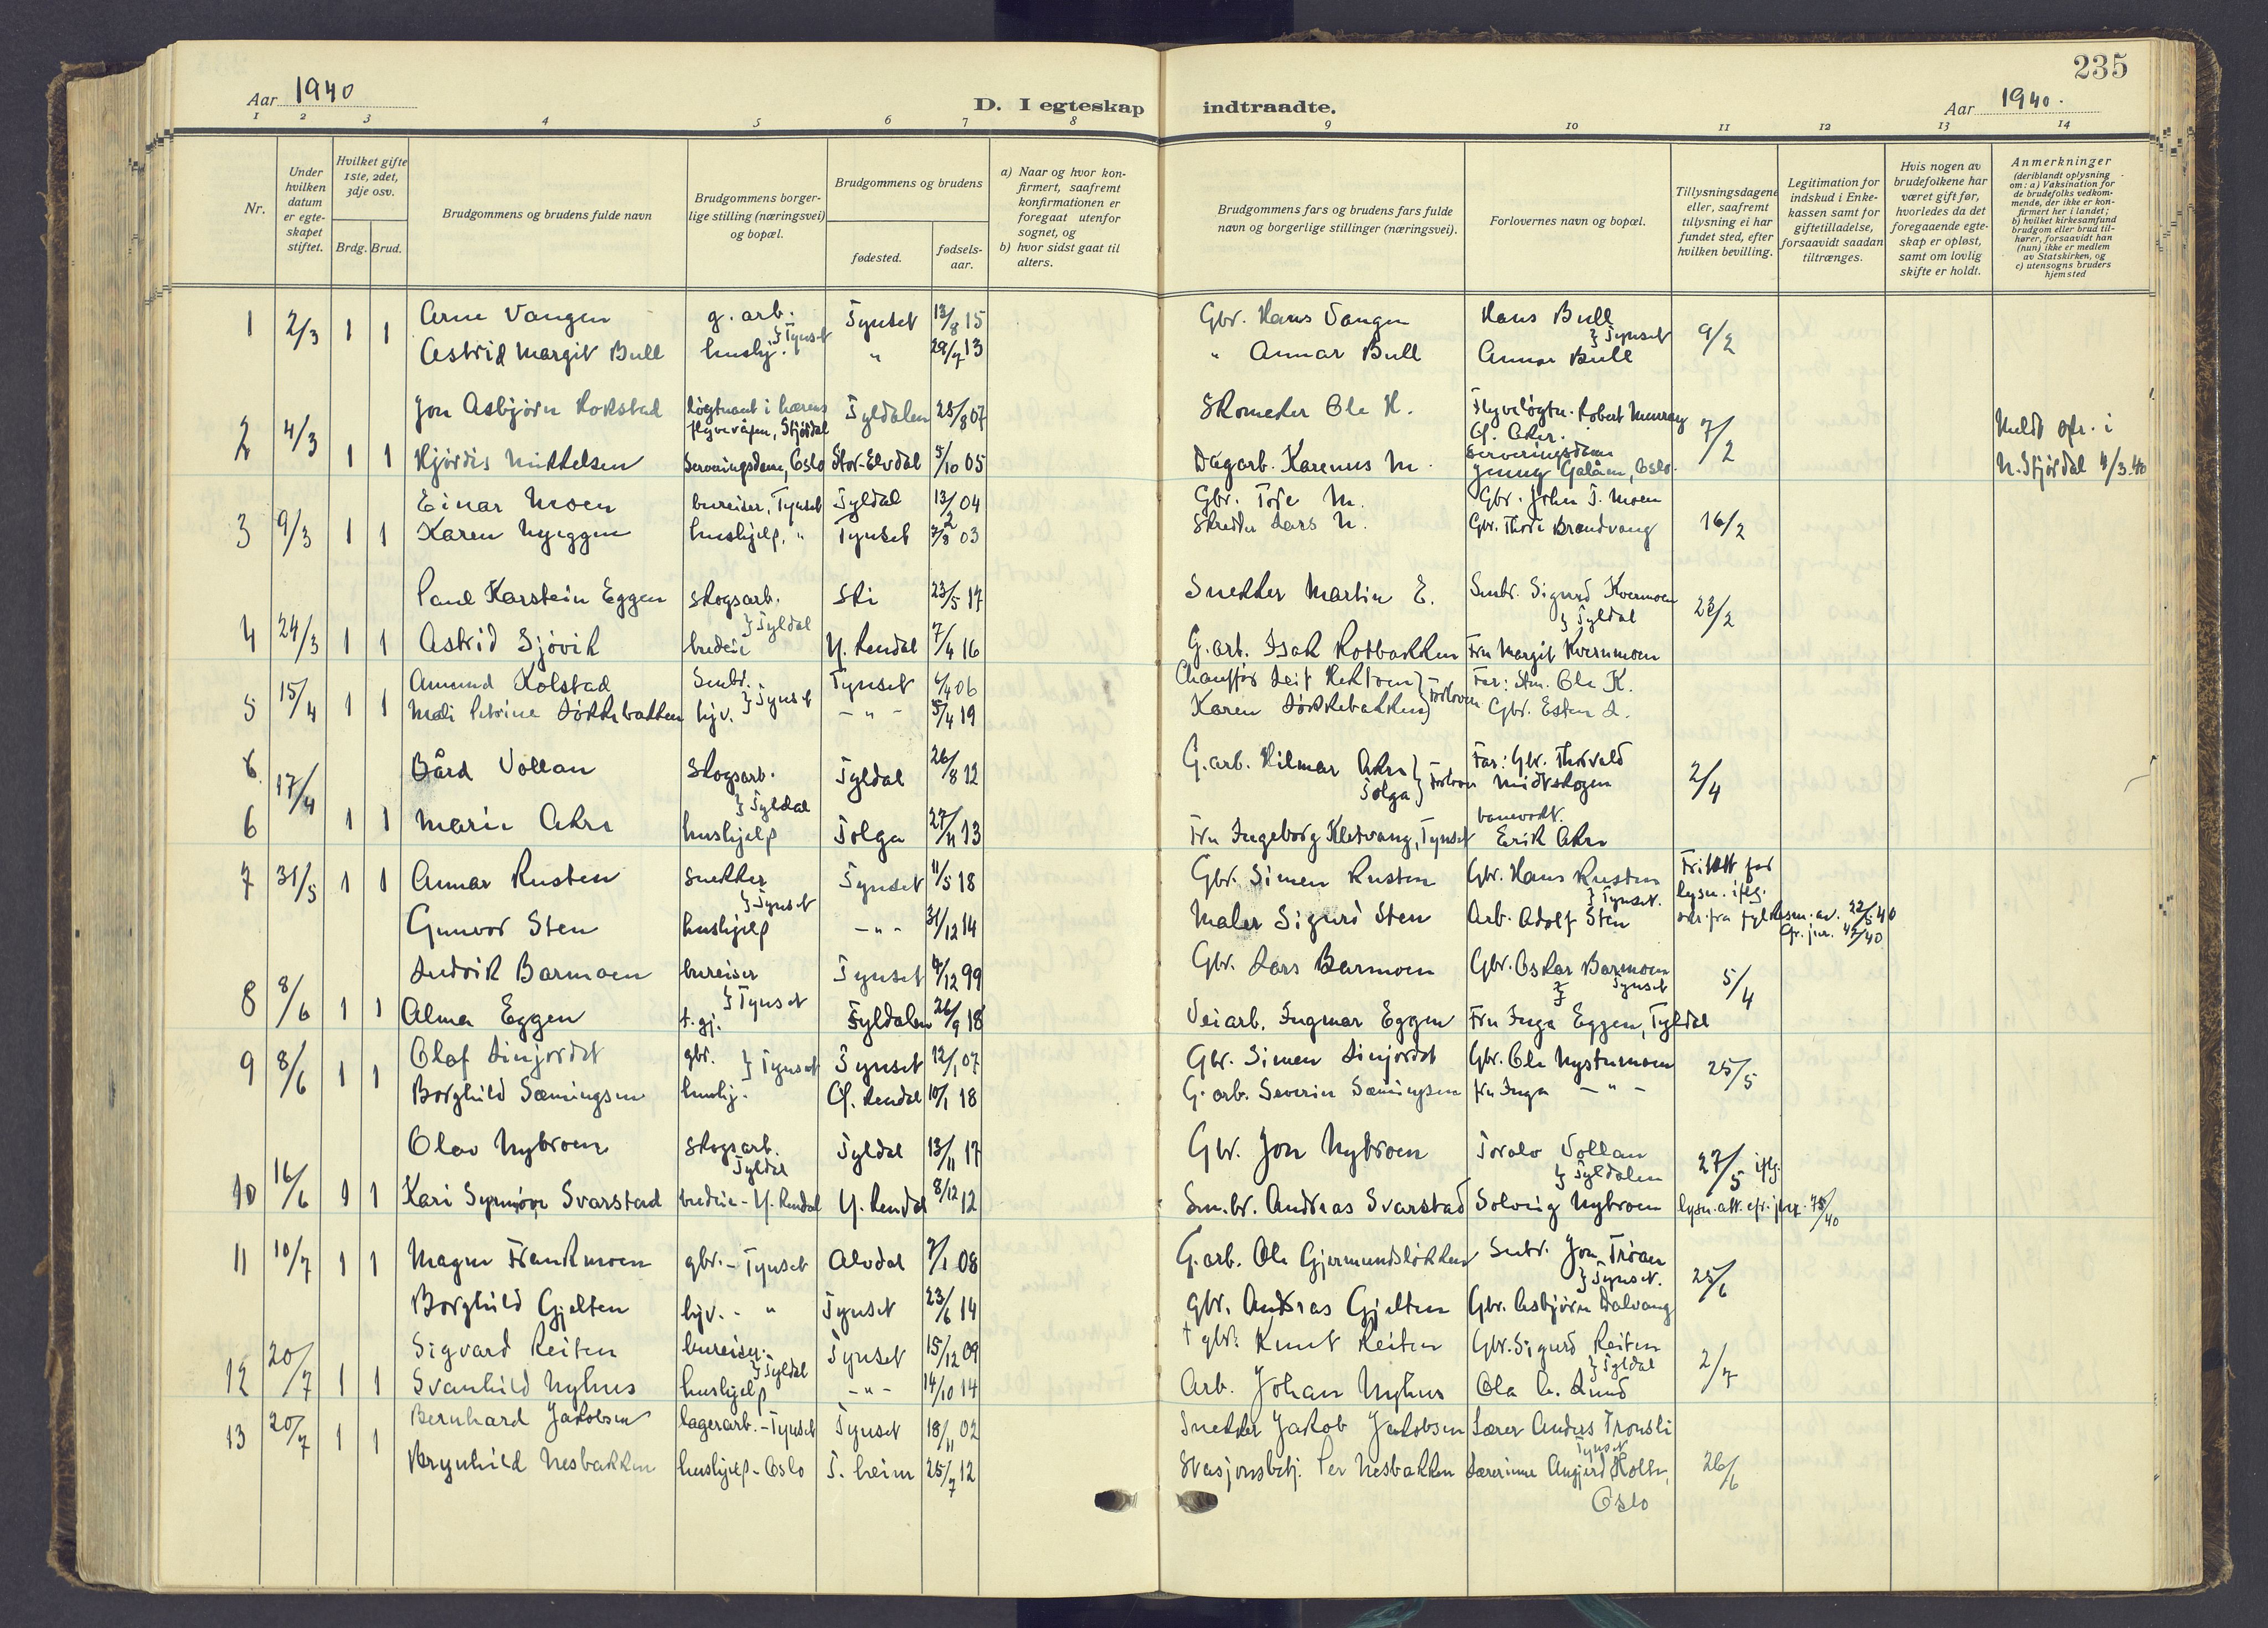 235
Aar 1940
D. I egteskap indtraadte.
Aar 1940.
1 2 3 4 5 6 7 8 9 10 11 12 13 14
Nr.
Under hvilken datum er egte- skapet stiftet.
Hvilket gifte 1ste, 2det, 3dje osv.
Brdg. Brud.
Brudgommens og brudens fulde navn
Brudgommens borger- lige stilling (næringsvei) og bopæl.
Brudgommens og brudens
fødested.
fødsels- aar.
a) Naar og hvor kon- firmert, saafremt konfirmationen er foregaat utenfor sognet, og
b) hvor sidst gaat til alters.
Brudgommens fars og brudens fars fulde navn og borgerlige stillinger (næringsvei).
Forlovernes navn og bopæl.
Tillysningsdagene eller, saafremt tillysning ei har fundet sted, efter hvilken bevilling.
Legitimation for indskud i Enke- kassen samt for giftetilladelse, forsaavidt saadan tiltrænges.
Hvis nogen av brudefolkene har været gift før, hvorledes da det foregaaende egte- skap er opløst, samt om lovlig skifte er holdt.
Anmerkninger (deriblandt oplysning om: a) Vaksination for de brudefolks vedkom- mende, der ikke er kon- firmert her i landet; b) hvilket kirkesamfund brudgom eller brud til- hører, forsaavidt han (hun) ikke er medlem av Statskirken, og c) utensogns bruders hjemsted
1 2/3 1 1 Arne Vangen g. arb. } Tynset Tynset 13/8 15 Gbr. Hans Vangen Hans Bull } Tynset 9/2
Astrid Margit Bull hushj. " 29/7 13 " Annar Bull Annar Bull
2 4/3 Jon Asbjørn Hokstad løgtnant i hærens flyvevåpen, Stjørdal Tyldalen 25/8 07 Skomaker Ole H. Flyveløgtn. Robert Murray Ø. Aker. 7/2 Meldt spr. i
1 1 Hjørdis Mikkelsen Serveringsdame, Oslo Stor-Elvdal 5/10 05 Dagarb. Karenus M. Serveringsdame Jenny Galåen, Oslo. N. Stjørdal 4/3.40
3 9/3 1 1 Einar Moen bureiser, Tynset Tyldal 13/2 04 Gbr. Tore M. Gbr. John T. Moen 16/2
Karen Nyeggen hushjelp, " Tynset 7/8 03 Skredder Lars N. Gbr. Thore Brandvang
4 24/3 1 1 Paul Karstein Eggen skogsarb. } Tyldal Ski 23/5 17 Snekker Martin E. Smbr. Sigurd Kvernmoen } Tyldal 23/2
Astrid Sjøvik budeie Y. Rendal 7/4 16 G. arb. Isak Rotbakken Fru Margit Kvernmoen
5 15/4 1 1 Amund Kolstad Smbr. } Tynset Tynset 6/4 06 Chauffør Leif Hektoen } Forlover Far: Sm. Ole K.
Mali Petrine Løkkebakken hjv. - " - 5/4 19 Karen Løkkebakken Gbr. Esten L.
6 17/4 Bård Vollan Skogsarb. } Tyldal Tyldal 26/8 12 G. arb. Hilmar Akre Tolga } Forlover Far: Gbr. Thorvald Midtskogen 2/4
6 1 1 Marie Akre hushjelp Tolga 27/11 13 Fru Ingeborg Kletvang, Tynset banevokt. Erik Akre
7 31/5 1 1 Annar Rusten snekker } Tynset Tynset 11/5 18 Gbr. Simen Rusten Gbr. Hans Rusten } Tynset. Fritatt for lysn. iflg.
Gunvor Sten hushjelp - " - 31/12 14 Maler Sigurd Sten Arb. Adolf Sten skr. fra fylkesm. av. 22/5 40 Gr. jnr. 47/40
8 8/6 1 1 Ludvik Barmoen bureiser } Tynset Tynset 4/12 99 Gbr. Lars Barmoen Gbr. Oskar Barmoen Tynset 5/4
Alma Eggen t. gj. Tyldalen 26/9 18 Veiarb. Ingmar Eggen Fru Inga Eggen, Tyldal
9 8/6 1 1 Olaf Linjordet gbr. } Tynset Tynset 12/1 07 Gbr. Simen Linjordet Gbr. Ole Nystumoen 25/5
Borghild Sæmingsen hushj. Ø. Rendal 10/1 18 G. arb. Severin Sæmingsen fru Inga - " -
10 16/6 1 1 Olav Nybroen skogsarb. Tyldal Tyldal 13/11 17 Gbr. Jon Nybroen Toralv Vollan } Tyldalen 27/5 iflg.
Kari Synnøve Svarstad budeie - Y. Rendal Y. Rendal 8/12 12 Sm.br. Andreas Svarstad Solveig Nybroen lysn. att. cfr. jnr. 75/40
11 10/7 1 1 Magne Frankmoen gbr. - Tynset Alvdal 7/1 08 G. arb. Ole Gjermundsløkken Smbr. Jon Trøan } Tynset. 25/6
Borghild Gjelten hjv. - " Tynset 23/6 14 Gbr. Andreas Gjelten Gbr. Asbjørn Dalvang
12 20/7 1 1 Sigvard Reiten bureiser } Tyldal Tynset 15/12 09 † gbr. Knut Reiten Gbr. Sigurd Reiten } Tyldal 2/7
Svanhild Nyhus hushjelp - " - 14/10 14 Arb. Johan Nyhus Ola A. Lund
13 20/7 1 1 Bernhard Jakobsen lagerarb. - Tynset Tynset 18/11 02 Snekker Jakob Jakobsen Lærer Anders Tronsli Tynset 26/6
Brynhild Nesbakken hushjelp - Oslo T. heim 25/7 12 Stasjonsbetj. Per Nesbakken Lærerinne Angjerd Holte, Oslo